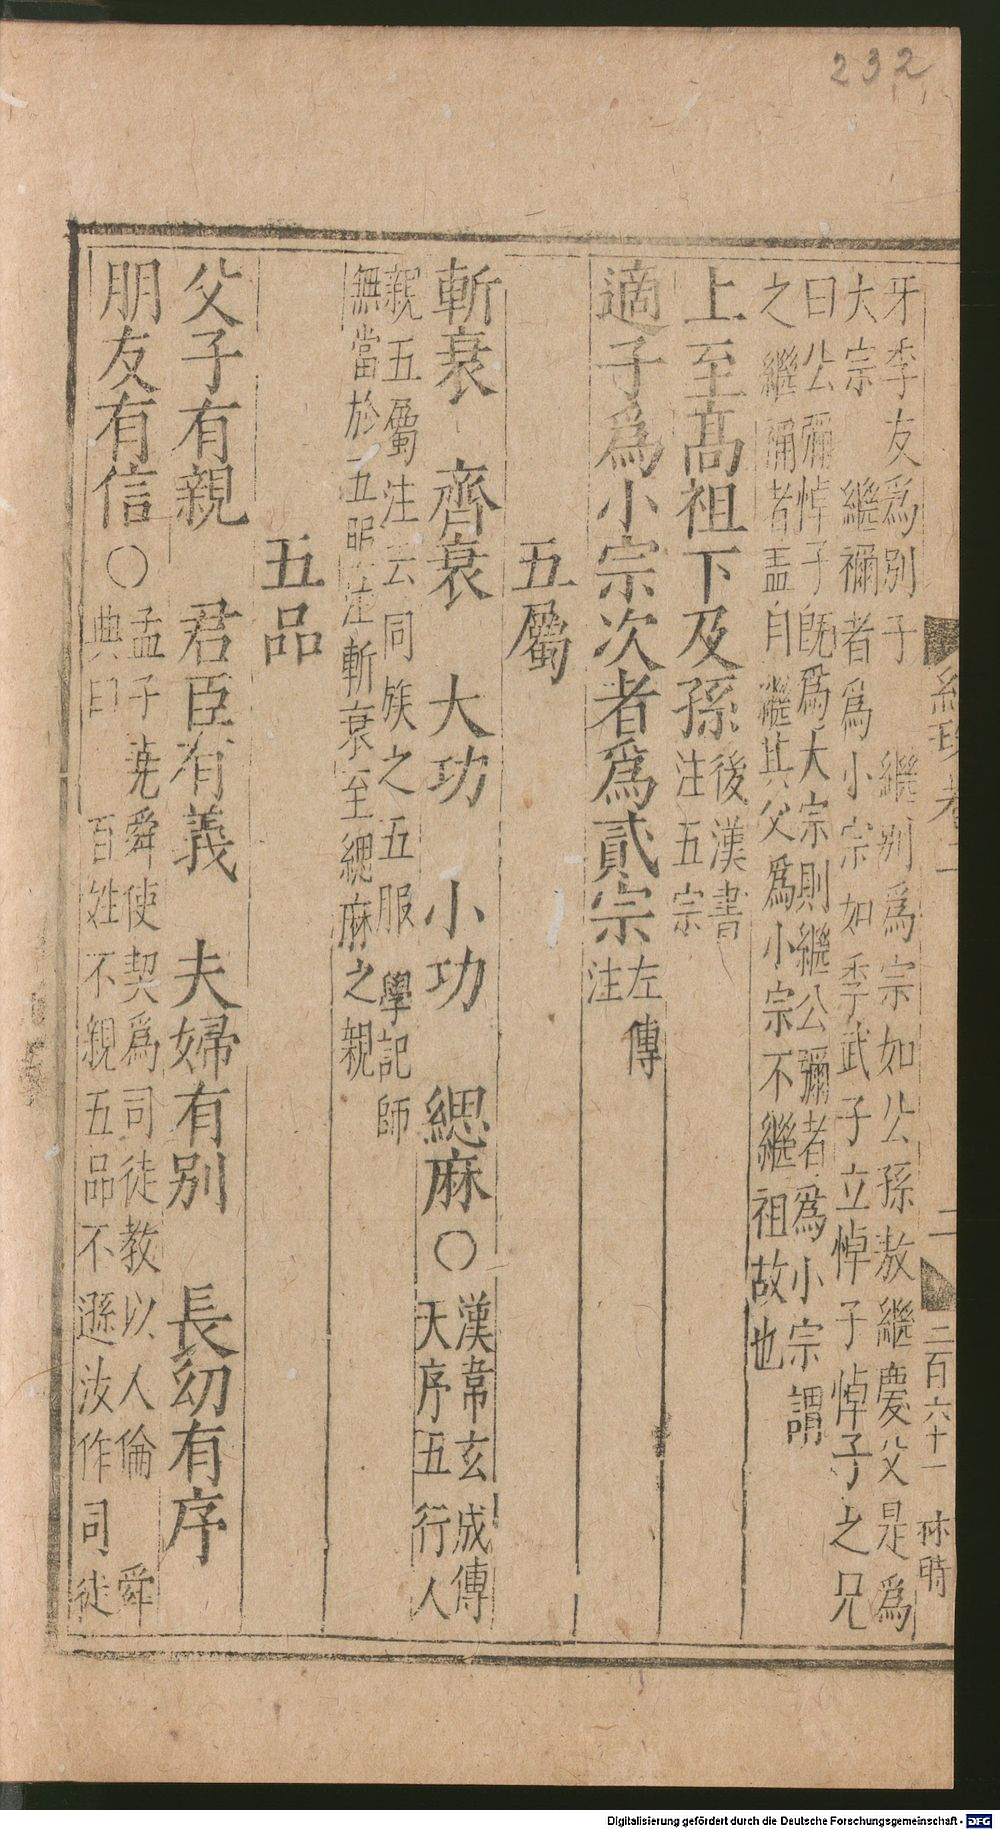 232
牙季友爲別子　繼別爲宗如公孫敖繼慶父是爲
大宗　繼禰者爲小宗如季武子立悼子悼子之兄
曰公彌悼子旣爲大宗則繼公彌者爲小宗謂
之繼禰者盖自繼其父爲小宗不繼祖故也
上至髙祖下及孫
後漢書
注五宗
適子爲小宗次者爲貳宗
左傳
注
五屬
斬衰　齊衰　大功　小功　緦麻○
漢韋玄成傳
天序五行人
親五屬注云同族之五服　學記師
無當於五服注斬衰至緦麻之親
五品
父子有親　君臣有義　夫婦有別　長幼有序
朋友有信○
孟子堯舜使契爲司徒教以人倫　舜
典曰　百姓不親五品不遜汝作司徒
二
二百六十一
林時
Digitalisierung gefördert durch die Deutsche Forschungsgemeinschaft - DFG